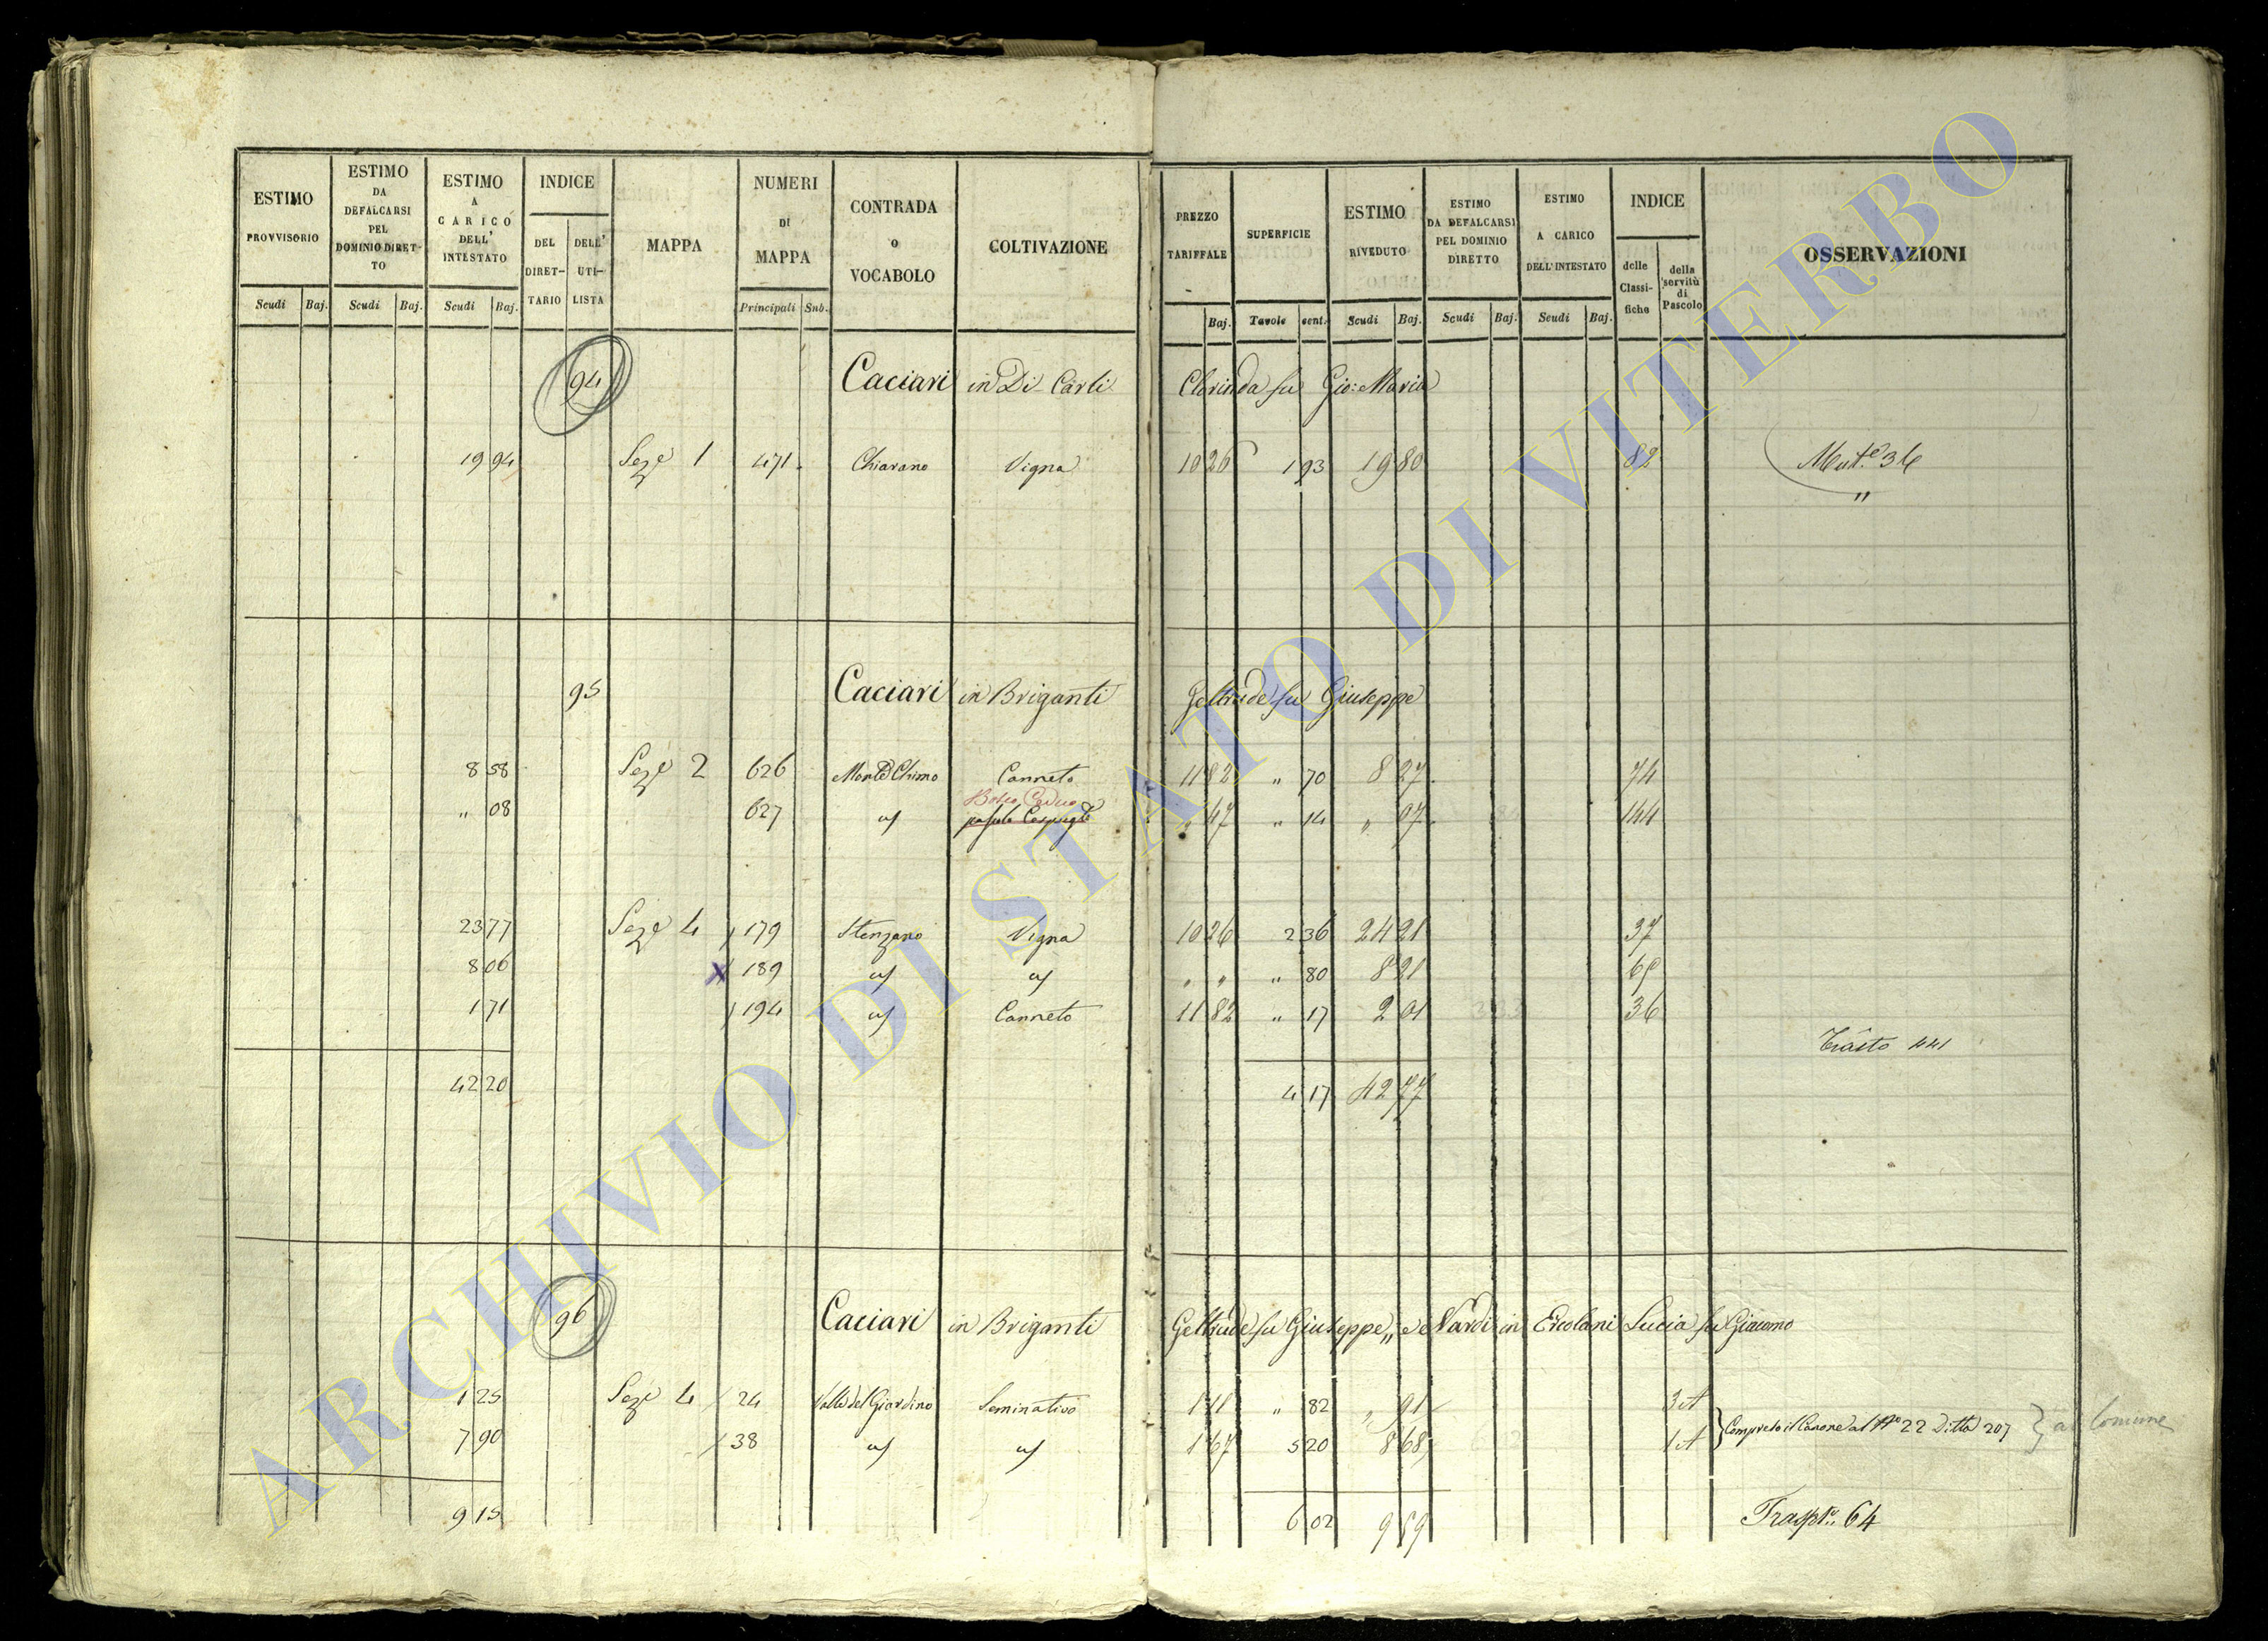 ESTIMO PROVVISORIO
Scudi Baj.
ESTIMO DA DEFALCARSI PEL DOMINIO DIRET- TO
Scudi Baj.
ESTIMO A CARICO DELL' INTESTATO
Scudi Baj.
INDICE
DEL DIRET- TARIO
DELL' UTI- LISTA
MAPPA
NUMERI DI MAPPA
Principali Sub.
CONTRADA O VOCABOLO
COLTIVAZIONE
PREZZO TARIFFALE
Baj.
SUPERFICIE
Tavole cent.
ESTIMO RIVEDUTO
Scudi Baj.
ESTIMO DA DEFALCARSI PEL DOMINIO DIRETTO
Scudi Baj.
ESTIMO A CARICO DELL'INTESTATO
Scudi Baj.
INDICE
delle Classi- fiche
della servitù di Pascolo
OSSERVAZIONI
94 Caciari in Di Carli Clorinda fu Gio: Maria
19 94 Seze 1 471 Chiarano Vigna 10 26 1 93 19 80 82
"
95 Caciari in Briganti Geltrude fu Giuseppe
8 58 Seze 2 626 Canneto 11 82 " 70 8 27 74
Bosco Ceduo
" 08 627 " 47 " 14 " 07 144
23 77 Seze 4 179 Stenzano Vigna 10 26 2 36 24 21 37
8 06 x 189 " " " 80 8 21
1 71 194 Canneto 11 82 " 17 2 01 36
441
42 20 4 17 42 77
96 Caciari in Briganti Geltrude fu Giuseppe,, e Nardi in Ercolani Lucia fu Giacomo
1 25 Seze 4 24 Valle del Giardino Seminativo 1 11 " 82 " 91
7 90 38 1 67 5 20 8 68
Compreso il Canone al No 22 Ditta 207 } al Comune
9 15 6 02 9 59 64
ARCHIVIO DI STATO DI VITERBO